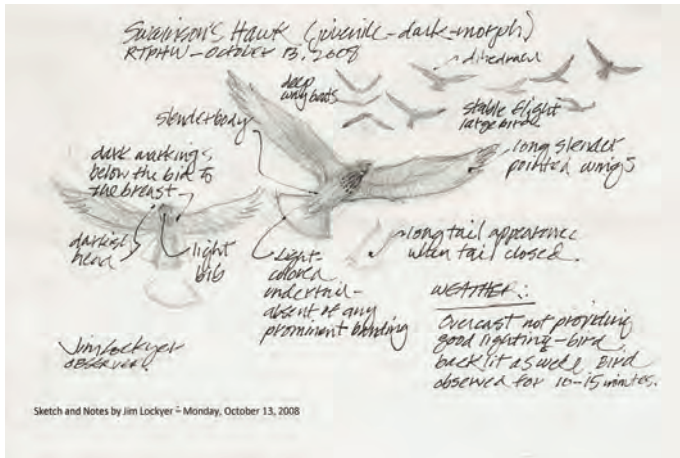 Swainson's Hawk (juvenile-dark-morph)
RTPHW - October 13, 2008
dihedral
deep
wing beats
stable flight
large bird
slender body
long slender
pointed wings
dark markings
below the bib to
the breast
darkish
head
light
bib
Light
colored
undertail -
absent of any
prominent banding
long tail appearance
when tail closed.
WEATHER:
Overcast not providing
good lighting - bird
back lit as well. Bird
observed for 10-15 minutes.
Jim Lockyer
OBSERVER
Sketch and Notes by Jim Lockyer – Monday, October 13, 2008